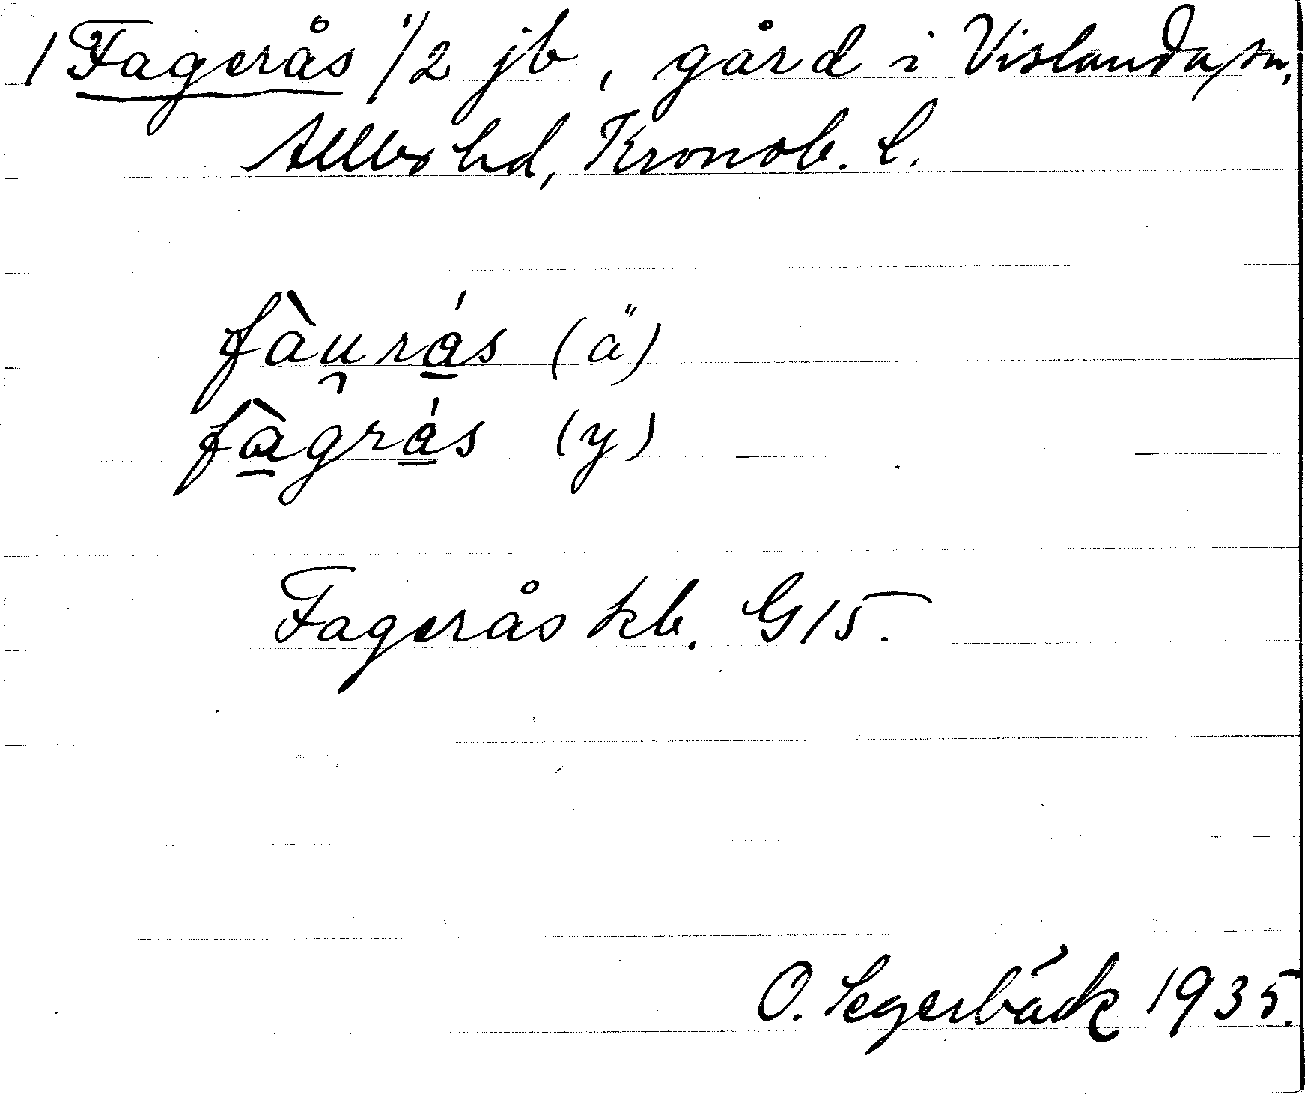 1 Fagerås 1/2 jb, gård i Vislanda sn,
Allbo hd, Kronob. l.
fàu̯rá̱s (ä)
fà̱grá̱s (y)
Fagerås kb. G15.
O. Segerbäck 1935.